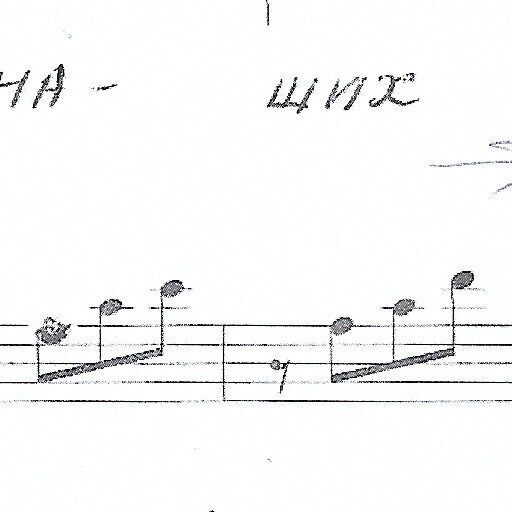 НА - ших